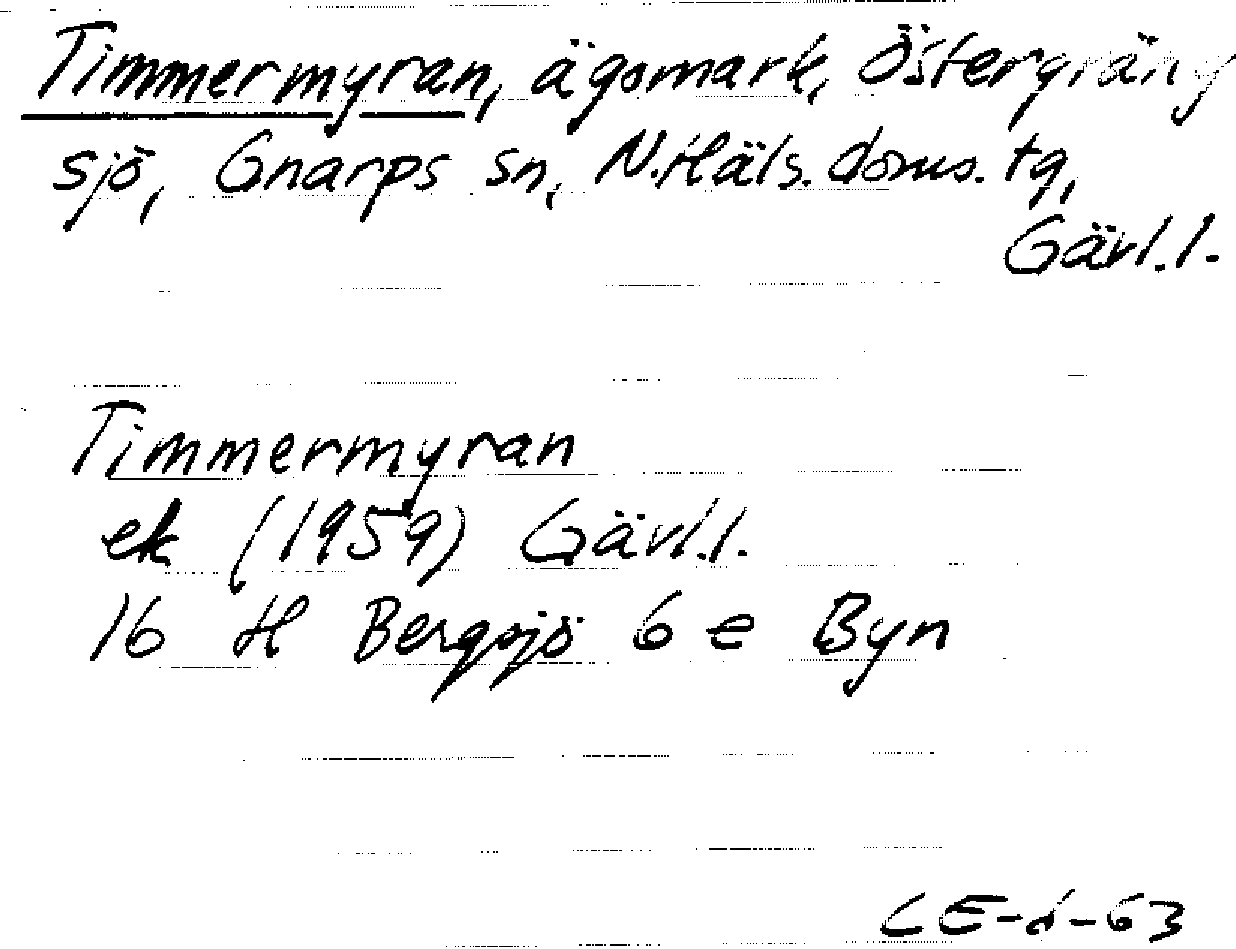 Timmermyran, ägomark, Östergräng
sjö, Gnarps sn, N. Häls. doms. tg,
Gävl. l.
Timmermyran
ek (1959) Gävl. l.
16 H Bergsjö 6 e Byn
CE-d-63